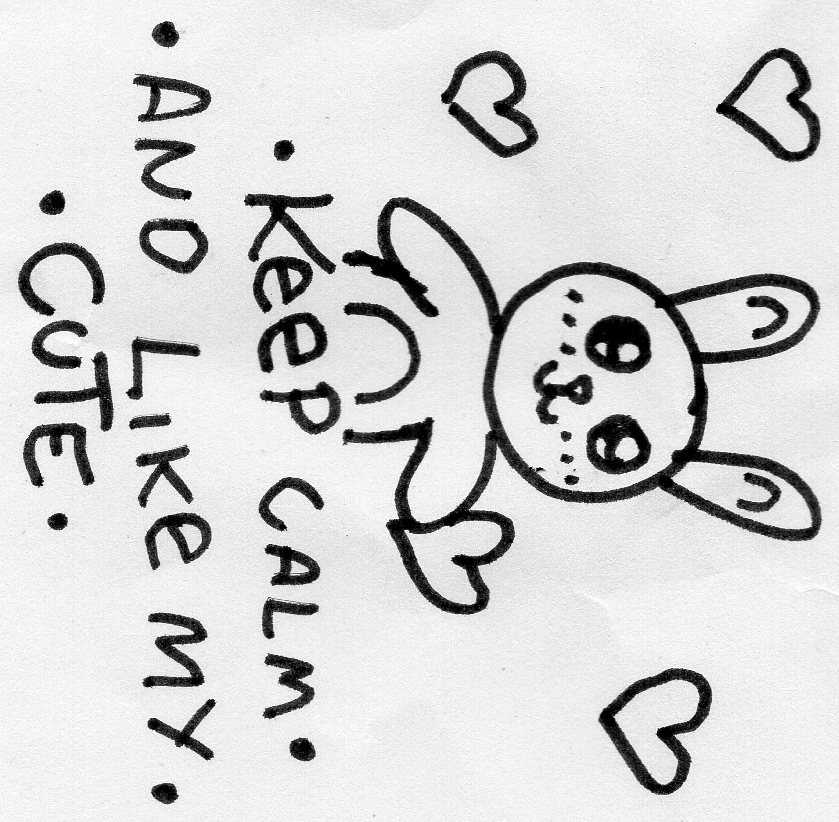 • Keep CALM •
• AND LIKe MY •
• CUTE •